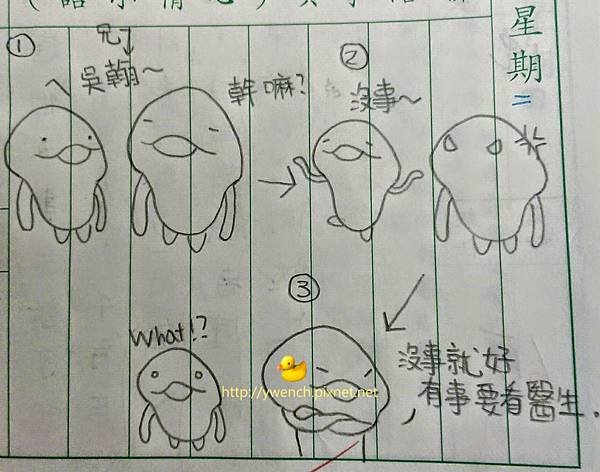 ①
兄
吳翰～
幹嘛?
②
沒事～
星期二
What!?
③
沒事就好,
有事要看醫生.
http://ywench.pixnet.net